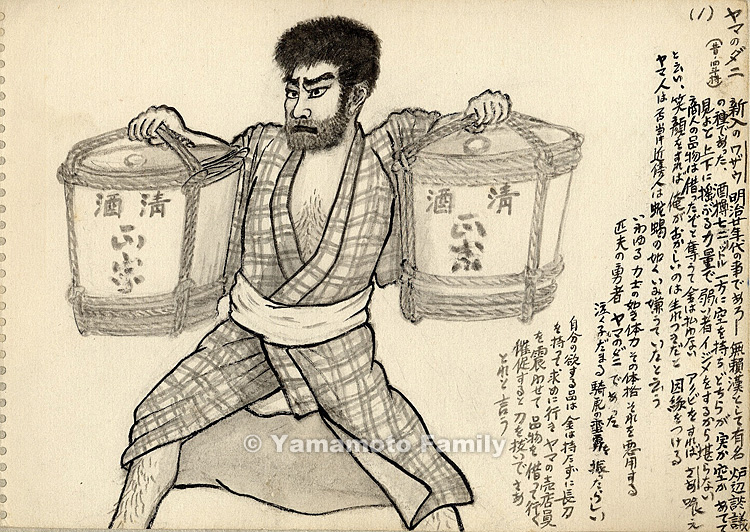 ヤマのダニ
(1)
(昔・四斗樽)
新入のワザウ 明治廿年代の事であろー 無頼漢として有名 炉辺談話
の種であった、酒樽七二リットル一方に空を持ち どちらが実か空か あてて
見よと 上下に揺ぶる力量で 弱い者イジメをするから堪らない
商人の品物は借ったぞと奪うて金は払わない アクビをすれば さあ喰え
と云い、笑顔をすれば 俺がおかしいのは生れつきだと 因縁をつける
ヤマ人は 否当時近傍人は 蛇蝎の如くいみ嫌うていたと云う
いわゆる力士の如き体力 その体格 それを悪用する
匹夫の勇者 ヤマのダニであった
泣く子だまる 騎虎の を振ったらしい
自分の欲する品は 金は持たずに長刀
を持って求めに行き ヤマの売店員
を震わせて 品物を借って行く
催促すると 刀を抜いてさあ
とれと言う
清酒
正宗
清酒
正宗
© Yamamoto Family